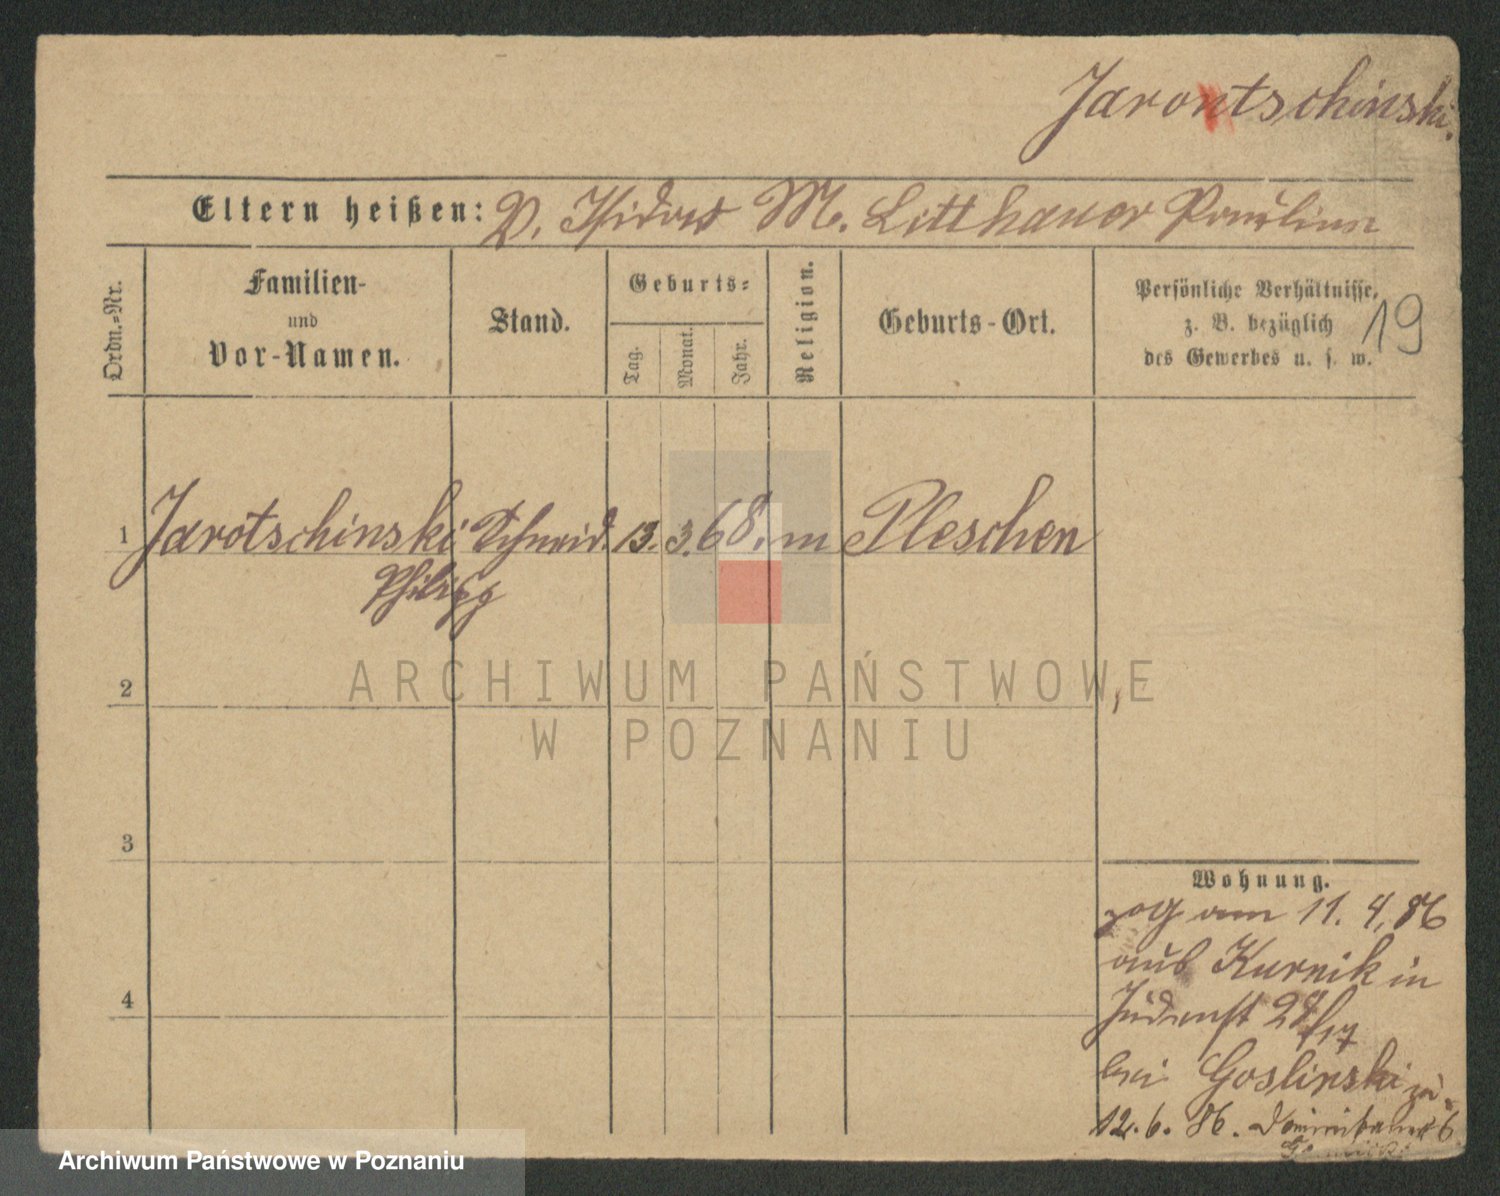 Jarontschinski.
Eltern heißen: V. Isidor M. Litthauer Pauline
Ordn.-Nr.
Familien-
und
Vor-Namen.
Stand.
Geburts-
Tag.
Monat.
Jahr.
Religion.
Geburts-Ort.
Persönliche Verhältnisse,
z. B. bezüglich
des Gewerbes u. s. w.
19
1 Jarotschinski Schneid. 13. 3. 68. m Pleschen
Philipp
ARCHIWUM PAŃSTWOWE
W POZNANIU
2
3
4
Wohnung.
zog am 11. 4. 86
aus Kurnik in
Judenst 28/17
bei Goslinski zu.
12. 6. 86. Dominikanerst 6
Archiwum Państwowe w Poznaniu